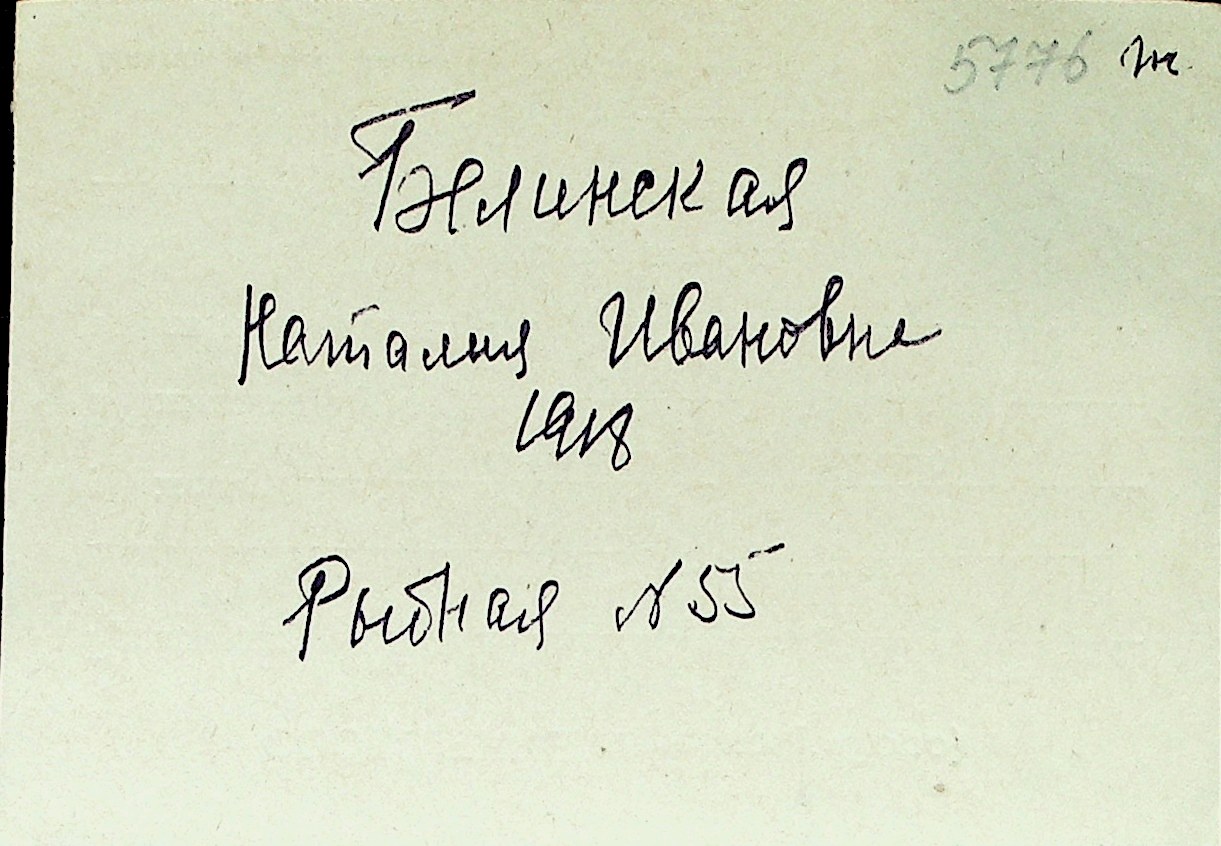 5776 ж.
Белинская
Наталия Ивановна
1918
Рыбная №55